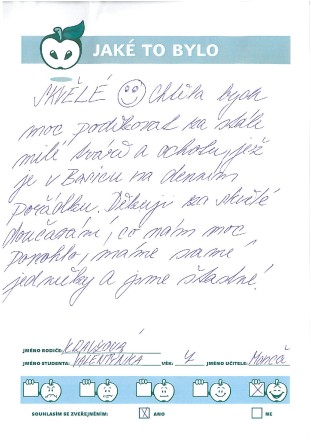 JAKÉ TO BYLO
SKVĚLÉ Chtěla bych
moc poděkovat za stále
milé tváře a ochotu, jež
je v Basicu na denním
pořádku. Děkuji za skvělé
doučování, co nám moc
pomohlo, máme samé
jedničky a jsme šťastné!
JMÉNO RODIČE: KRALIKOVÁ
JMÉNO STUDENTA: VALENTÝNKA VĚK: 7 JMÉNO UČITELE:
SOUHLASÍM SE ZVEŘEJNĚNÍM: X ANO NE